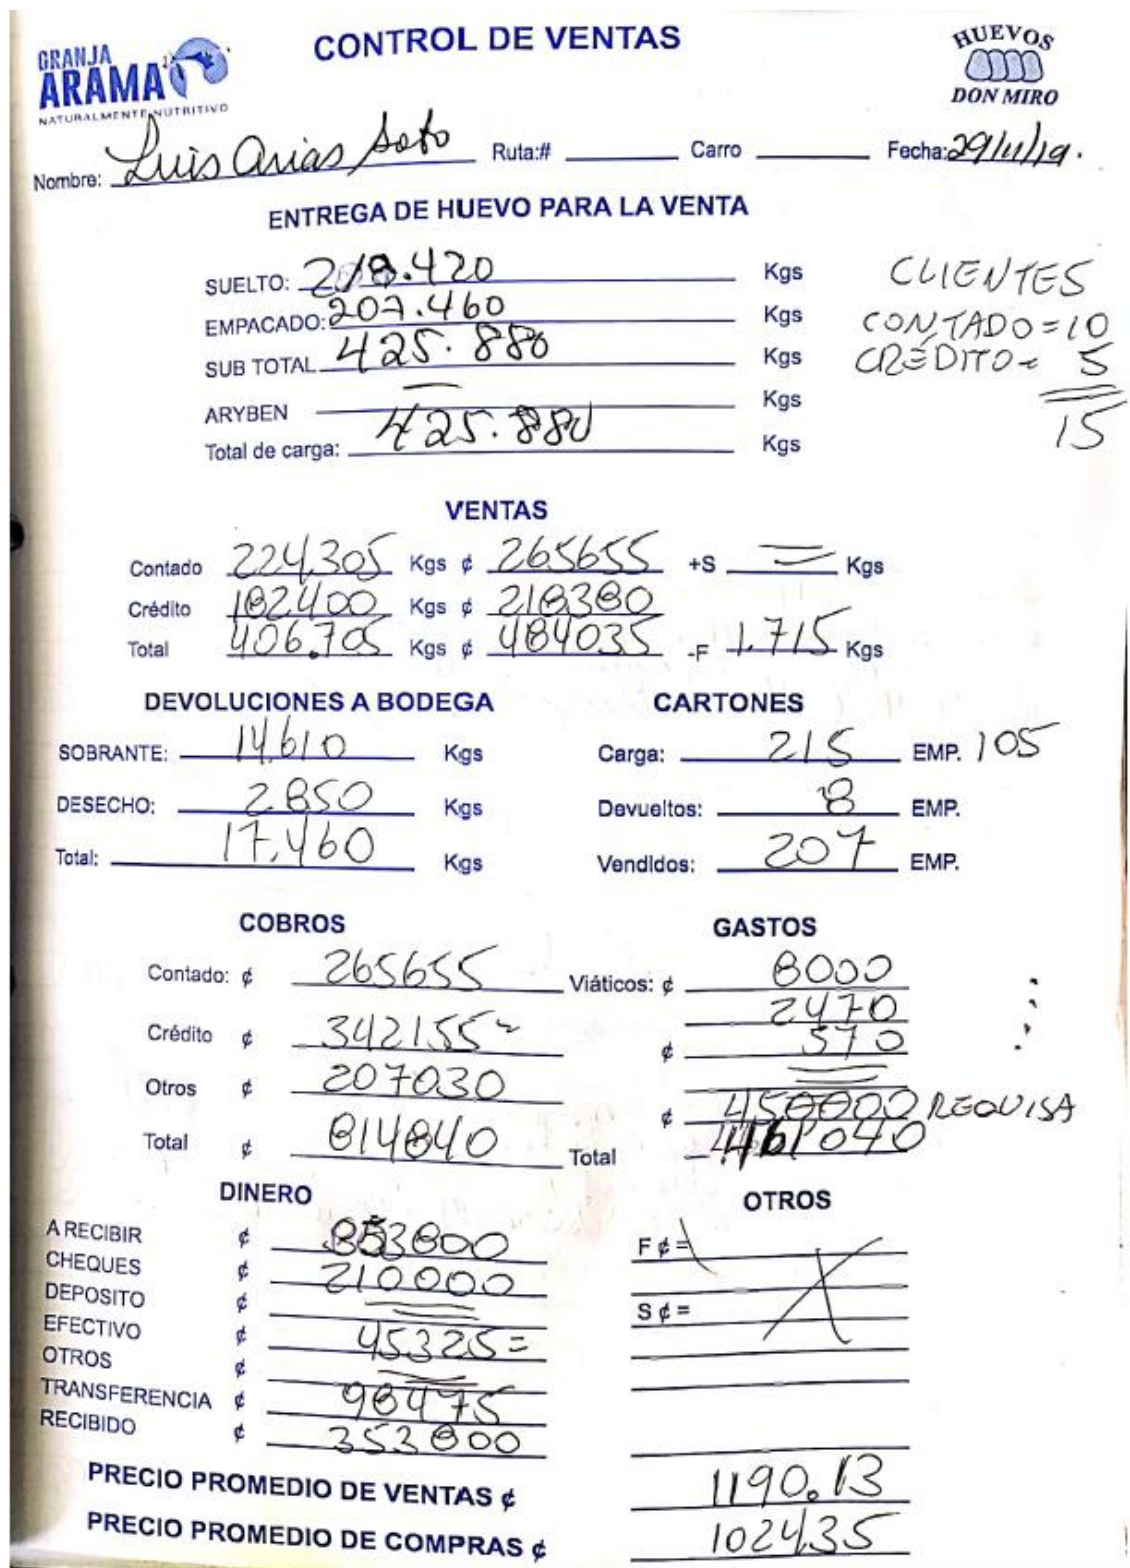 GRANJA
ARAMA
NATURALMENTE NUTRITIVO
CONTROL DE VENTAS
HUEVOS
DON MIRO
Nombre: Luis Arias Soto Ruta:# Carro Fecha: 29/11/19.
ENTREGA DE HUEVO PARA LA VENTA
SUELTO: 218.420 Kgs
EMPACADO: 207.460 Kgs
SUB TOTAL 425.880 Kgs
ARYBEN — Kgs
Total de carga: 425.880 Kgs
CLIENTES
CONTADO = 10
CRÉDITO = 5
15
VENTAS
Contado 224.305 Kgs ¢ 265655 +S = Kgs
Crédito 182400 Kgs ¢ 218380
Total 406.705 Kgs ¢ 484035 -F 1.715 Kgs
DEVOLUCIONES A BODEGA
SOBRANTE: 14.610 Kgs
DESECHO: 2.850 Kgs
Total: 17.460 Kgs
CARTONES
Carga: 215 EMP. 105
Devueltos: 8 EMP.
Vendidos: 207 EMP.
COBROS
Contado: ¢ 265655
Crédito ¢ 342155
Otros ¢ 207030
Total ¢ 814840
GASTOS
Viáticos: ¢ 8000
2470
¢ 570
=
¢ 450000 REQUISA
Total 461040
DINERO
A RECIBIR ¢ 353800
CHEQUES ¢ 210000
DEPOSITO ¢ =
EFECTIVO ¢ 45325=
OTROS ¢ =
TRANSFERENCIA ¢ 98475
RECIBIDO ¢ 353800
OTROS
F ¢ =
S ¢ =
PRECIO PROMEDIO DE VENTAS ¢ 1190.13
PRECIO PROMEDIO DE COMPRAS ¢ 1024.35